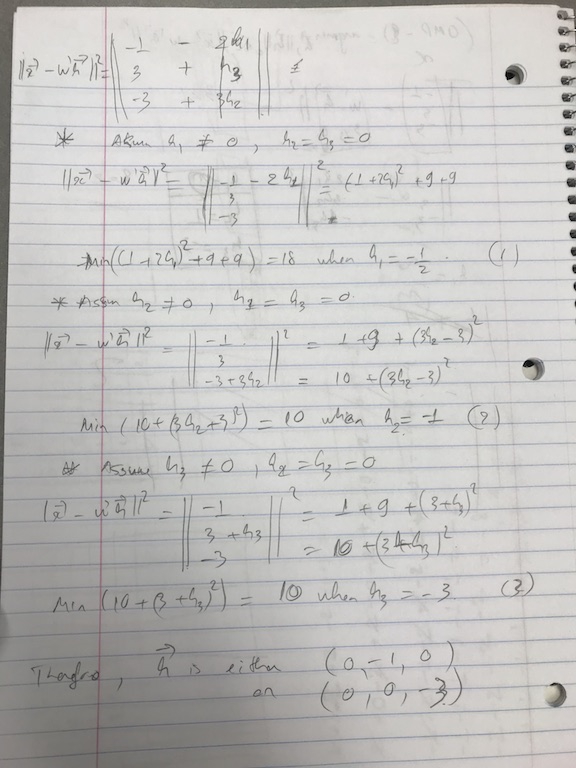 ||x⃗ - w'h⃗||² = || -1 - 2h1 ||
|| 3 + h3 ||
|| -3 + 3h2 ||
* Assum h1 ≠ 0 , h2 = h3 = 0
||x⃗ - w'h⃗||² = || -1 - 2h1 ||² = (1+2h1)² + 9 + 9
3
-3
Min((1+2h1)² + 9 + 9) = 18 when h1 = -1/2 . (1)
* Assum h2 ≠ 0 , h1 = h3 = 0.
||x⃗ - w'h⃗||² = || -1 ||² = 1 + 9 + (3h2 - 3)²
3
-3+3h2 = 10 + (3h2-3)²
Min (10 + (3h2+3)²) = 10 when h2 = -1 (2)
* Assume h3 ≠ 0 , h1 = h3 = 0
|x⃗ - w'h⃗||² = || -1 ||² = 1 + 9 + (3+h3)²
3 + h3
-3 = 10 + (3+h3)²
Min (10 + (3 + h3)²) = 10 when h3 = -3 (3)
, h⃗ is either (0, -1, 0)
or (0, 0, -3)